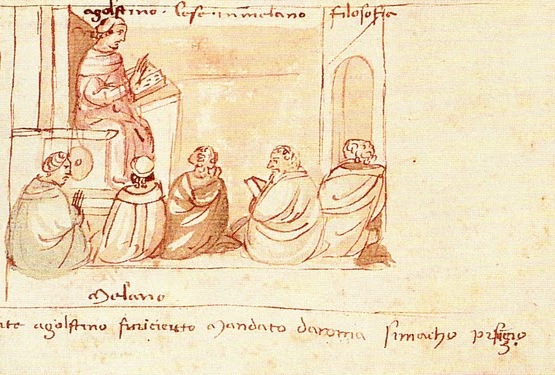 agostino lese inmelano filosofia
Melano
te agostino furicierto Mandato daroma simacho